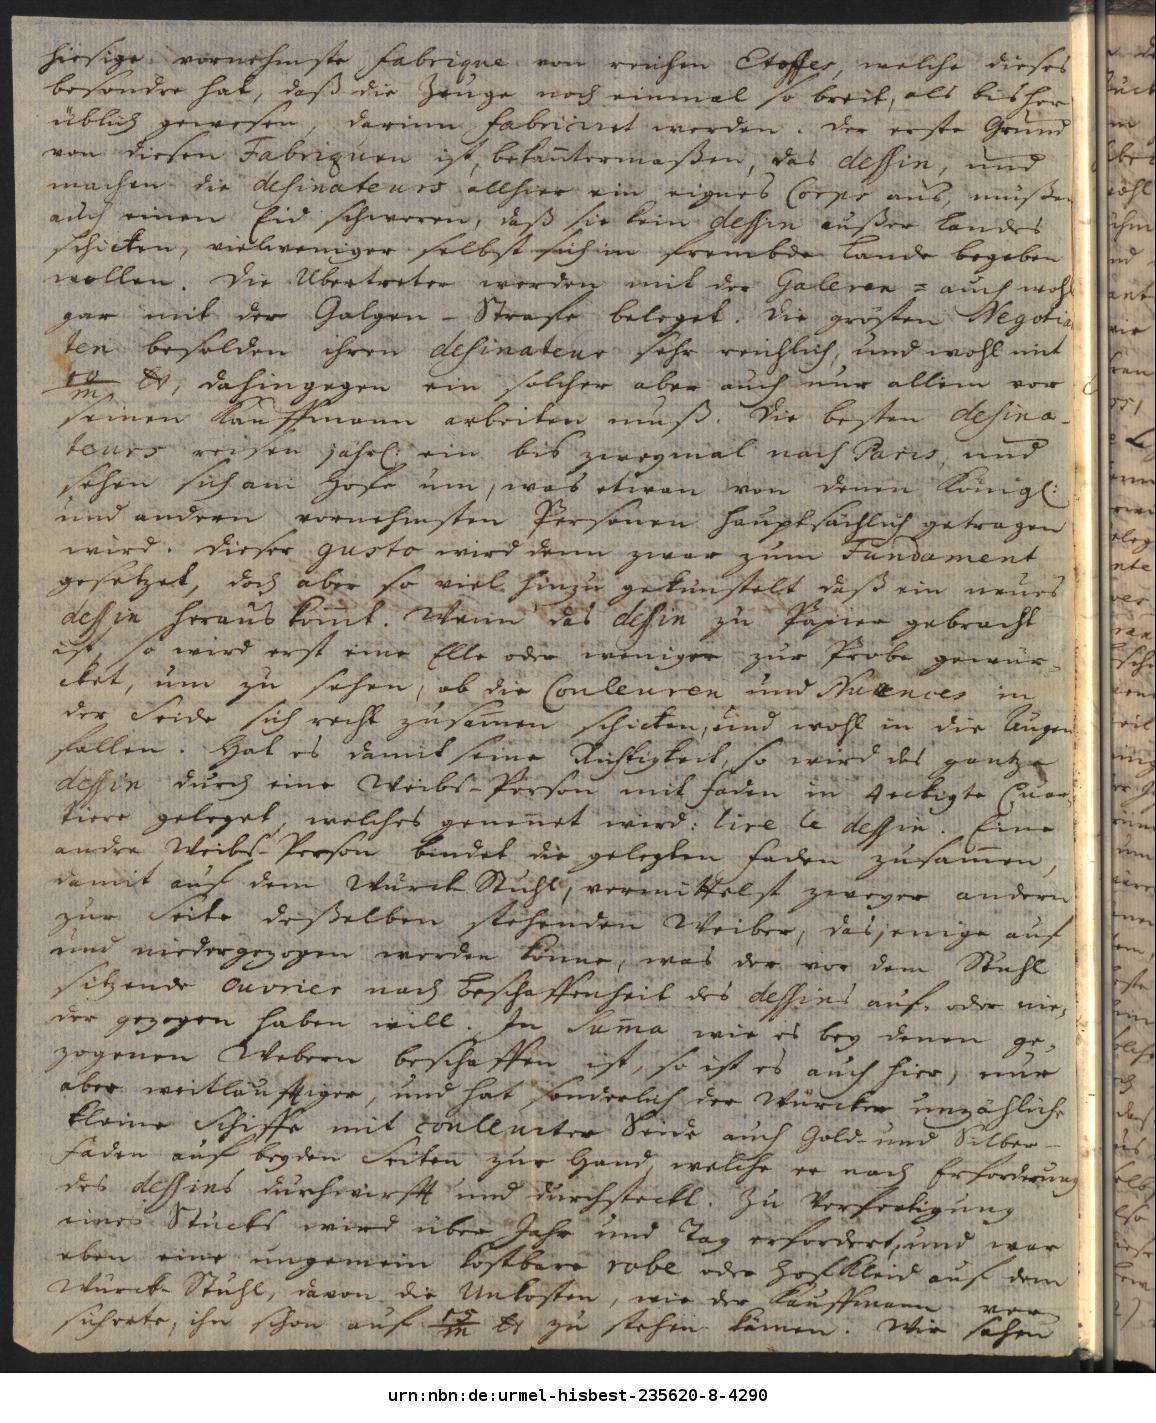 hiesige vornehmste fabrique von reichen Etoffes, welche dieses
besondre hat, daß die Zeuge noch einmal so breit, als bisher
üblich gewesen, darinn fabriciret werden. Der erste Grund
von diesen Fabriquen ist, bekantermaßen, das dessin, und
machen die desinateurs allhier ein eignes Corps aus, mußen
auch einen Eid schweren, daß sie kein dessin außer Landes
schicken, vielweniger selbst sich in frembde Lande begeben
wollen. Die Ubertreter werden mit der Galeren = auch wohl
gar mit der Galgen-Strafe beleget. Die grösten Negotian
ten besolden ihren desinateur sehr reichlich, und wohl mit
dahingegen ein solcher aber auch nur allein vor
seinen Kauffmann arbeiten muß. Die besten desina-
teurs reisen jährl: ein bis zweymal nach Paris, und
sehen sich am Hofe um, was etwan von denen Königl:
und andern vornehmsten Personen hauptsächlich getragen
wird. Dieser gusto wird denn zwar zum Fundament
gesetzet, doch aber so viel hinzu gekünstelt daß ein neues
dessin heraus komt. Wenn das dessin zu Papier gebracht
ist, so wird erst eine Elle oder weniger zur Probe gewür-
cket, um zu sehen, ob die Couleuren und Nuances in
der Seide sich recht zusamen schicken, und wohl in die Augen
fallen. Hat es damit seine Richtigkeit, so wird das gantze
dessin durch eine Weibs-Person mit faden in 4eckigte Quar-
tiere geleget, welches genennet wird: lire le dessin. Eine
andre Weibs-Person bindet die gelegten faden zusamen,
damit auf dem Würck Stuhl, vermittelst zweyer andern
zur Seite deßelben stehenden Weiber, dasjenige auf
und niedergezogen werden könne, was der vor dem Stuhl
sitzende ouvrier nach Beschaffenheit des dessins auf- oder nie-
der gezogen haben will. In Suma wie es bey denen ge-
zogenen Webern beschaffen ist, so ist es auch hier, nur
aber weitläufftiger, und hat sonderlich der Würcker unzähliche
kleine Schiffe mit coulleurter Seide auch Gold- und Silber-
Faden auf beyden Seiten zur Hand, welche er nach Erforderung
des dessins durchwirfft und durchsteckt. Zu Verfertigung
eines Stücks wird über Jahr und Tag erfordert, und war
eben eine ungemein kostbare robe oder Hofkleid auf dem
Würck-Stuhl, davon die Unkosten, wie der Kauffmann ver-
sicherte, ihn schon auf zu stehen kämen. Wir sahen
urn:nbn:de:urmel-hisbest-235620-8-4290